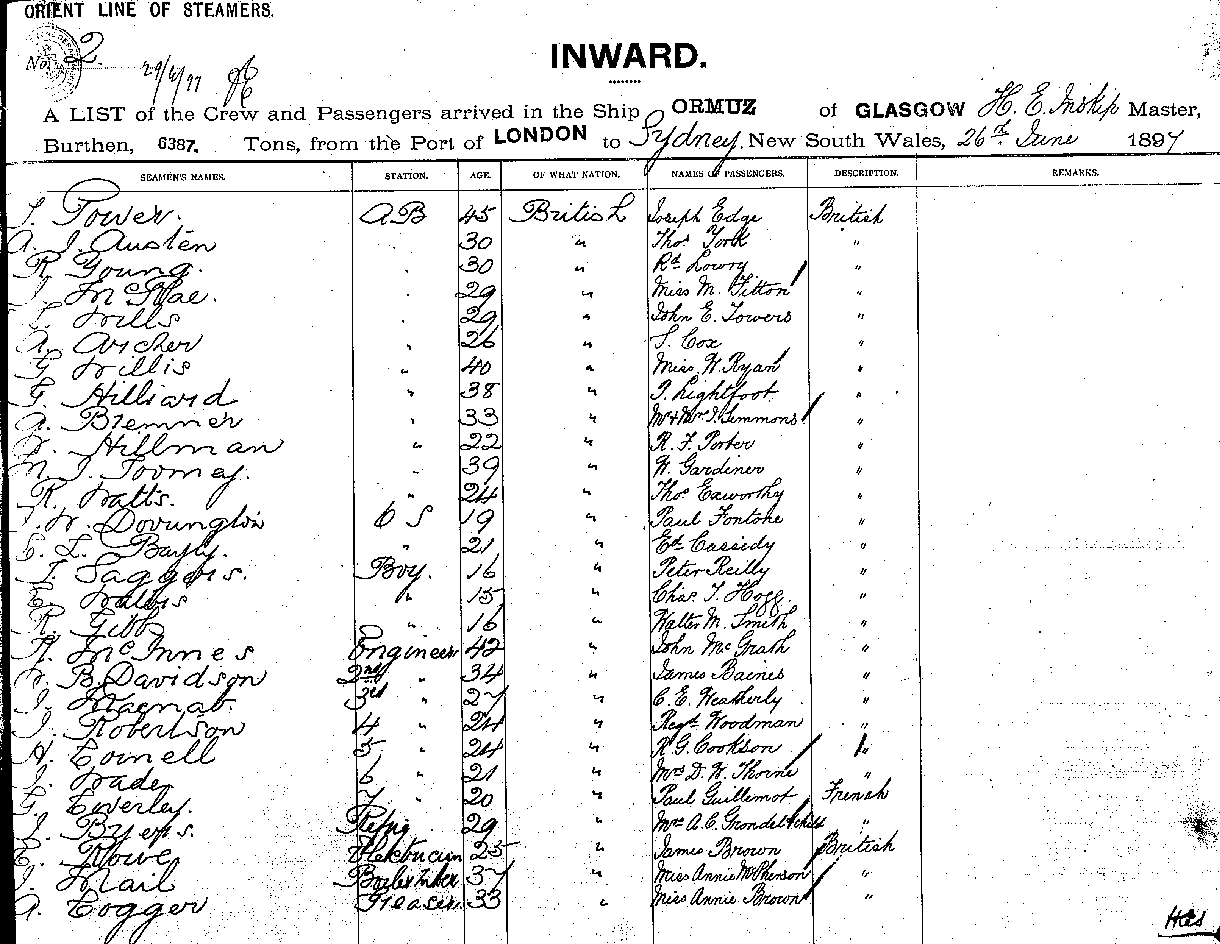 ORIENT LINE OF STEAMERS.
No. 2
29/6/97
INWARD.
A LIST of the Crew and Passengers arrived in the Ship ORMUZ of GLASGOW H. E. Inskip Master,
Burthen, 6387. Tons, from the Port of LONDON to Sydney, New South Wales, 26th June 1897
SEAMEN'S NAMES. STATION. AGE. OF WHAT NATION. NAMES OF PASSENGERS. DESCRIPTION. REMARKS.
Power. AB 45 British Joseph Edge British
A. J. Austen " 30 " Thos York "
R. Young. " 30 " Rt. Lowry "
J. McRae. " 29 " Miss M. Fitton "
Wills " 29 " John E. Towers "
A. Archer " 26 " S. Cox "
G. Willis " 40 " Miss W. Ryan "
Hilliard " 38 " Lightfoot "
A. Bremner " 33 " Mr & Mrs Simmons "
W. Hillman " 22 " R. F. Porter "
J. Toomey. " 39 " W. Gardiner "
R. Watts. " 24 " Thos Exworthy "
W. 19 " Paul Fontone "
L. Bayly. " 21 " Ed. Cassidy "
Saggers. Boy. 16 " Peter Reilly "
" 15 " Chas. T. Hogg. "
R. Gibb " 16 " Walter M. Smith "
McInnes Engineer 42 " John McGrath "
W. B. Davidson 2nd " 34 " James Baines "
J. Macnab. 3rd " 27 " C. E. Weatherly "
J. Robertson 4 " 24 " Regd. Woodman "
H. Cornell 5 " 24 " R. G. Cookson "
Wade 6 " 21 " Mrs D. W. Thorne "
Everley. 7 " 20 " Paul Guillemot French
Byers. Refrig 29 " Mrs A. C. & child "
Rowe Electrician 25 " James Brown British
J. Mail Boilermaker 37 " Miss Annie McPherson "
A. Cogger Greaser 33 " Miss Annie Brown "